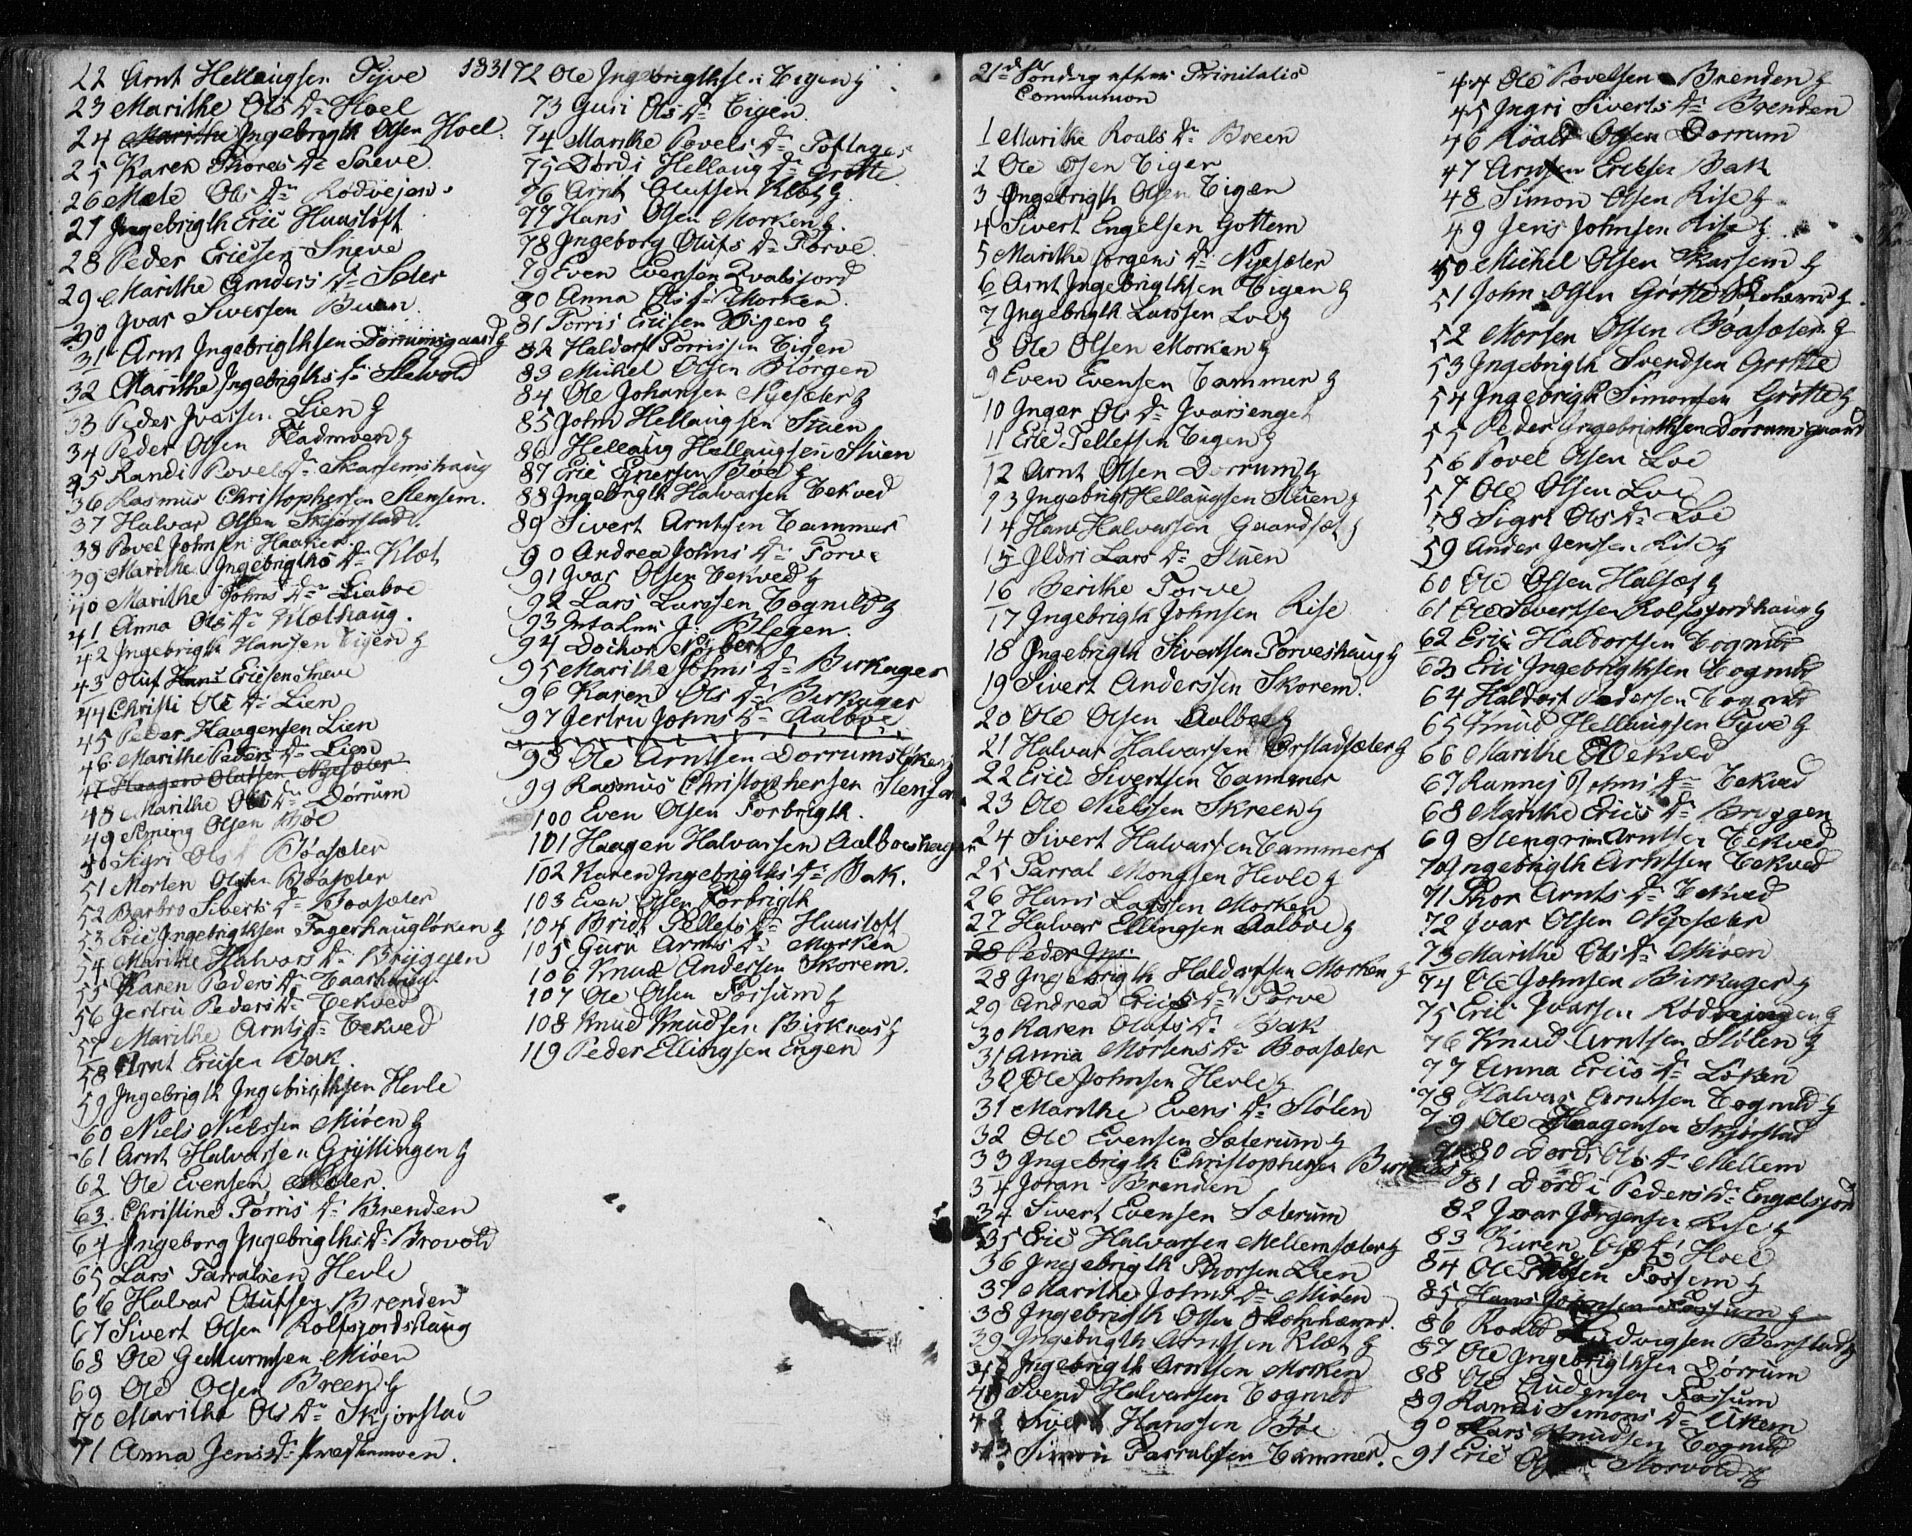 22 Arnt Hellaugsen Tyve 1831
23 Marithe Ols Dr Hoel
24 Ingebrigth Olsen Hoel
25 Karen Thores Dr
26 Mele Ols Dr
27 Ingebrigth Eric Huusloft
28 Peder Ericsen Sneve
29 Marithe Anders Dr
30 Ivar Siversen
31 Arnt Ingebrigthsen Dorrumsgaard
32 Marithe Ingebrigths Dr
33 Peder Ivarsen Lien
34 Peder Olsen Fladmoen
35 Randi Povels Dr Skarsemshaug
36 Rasmus Christophersen Stensem
37 Halvar Olsen Skjorstad
38 Povel Johnsen Haaker
39 Marithe Ingebrigths Dr Klæt
40 Marithe Johns Dr Liaboe
41 Anna Ols Dr Klæthaug
42 Ingebrigth Hansen Eigen
43 Oluf Hans Ericsen Sneve
44 Christi Ole Dr Lien
45 Peder Haagensen Lien
46 Marithe Peders Dr Lien
47 Haagen Olufsen Nyesæter
48 Marithe Ols Dr Dørrum
49 Olsen Boe
50 Sigri Ols Dr Bøasæter
51 Morten Olsen Bøasæter
52 Barbro Siverts Dr Boasæter
53 Eric Ingebrigthsen Fagerhaugløken
54 Marithe Halvars Dr Bryggen
55 Karen Peders Dr
56 Jertru Peders Dr Tekved
57 Marithe Arnts Dr Tekved
58 Arnt Ericsen Bak
59 Ingebrigth Ingebrigthsen Hevle
60 Niels Nielssen Miøen
61 Arnt Halvarsen Gryttingen
62 Ole Evensen
63 Christine Torris Dr Brenden
64 Ingeborg Ingebrigths Dr Brovold
65 Lars Tarralsen Hevle
66 Halvar Olufsen Brenden
67 Sivert Olsen Rolfsjordshaug
68 Ole Gudmunsen Miøen
69 Ole Olsen Breen
70 Maritha Ols Dr Skjorstad
71 Anna Jens Dr
72 Ole Ingebrigthsen Eigen
73 Guri Ols Dr Eigen
74 Marithe Povels Dr Toftager
75 Dordi Hellaug Dr Grøtte
76 Arnt Olufsen Klæt
77 Hans Olsen Morken
78 Ingeborg Olufs Dr Torve
79 Even Evensen Qvalsjord
80 Anna Ols Dr Morken
81 Torris Ericsen Eigen
82 Haldorf Torrissen Eigen
83 Michel Olsen Blorgen
84 Ole Johansen Nyesæter
85 John Hellaugsen Stuen
86 Hellaug Hellaugsen Stuen
87 Eric Boe
88 Ingebrigth Halvarsen Tekved
89 Sivert Arntsen Tammer
90 Andrea Johns Dr Torve
91 Ivar Olsen Tekved
92 Lars Larssen Tognild
93 Blegen
94
95 Marithe Johns Dr Birkager
96 Karen Ols Dr Birkager
97 Jertru Johns Dr Aalboe
98 Ole Arntsen Dorrumsløken
99 Rasmus Christophersen Stensem
100 Even Olsen Forbrigth
101 Haagen Halvarsen Aalboeshagen
102 Karen Ingebrigths Dr Bak
103 Even Olsen Forbrigth
104 Bridt Pellefs Dr Huusloft
105 Guru Arnts Dr Morken
106 Knud Andersen Skorem
107 Ole Olsen Fossum
108 Knud Knudsen Birknes
119 Peder Ellingsen Engen
21de Søndag efter Trinitatis
Communion
1 Marithe Roals Dr Breen
2 Ole Olsen Eigen
3 Ingebrigth Olsen Eigen
4 Sivert Engelsen Gottem
5 Marithe Jorgens Dr Nyesæter
6 Arnt Ingebrigthsen Eigen
7 Ingebrigth Larssen Loe
8 Ole Olsen Morken
9 Even Evensen Tammer
10 Inger Ols Dr Ivarsenget
11 Eric Tellefsen Eigen
12 Arnt Olsen Dorrum
13 Ingebrigt Hellaugsen Stuen
14 Hans Halvarsen Gaardsæt
15 Ildri Lars Dr Stuen
16 Berithe Torve
17 Ingebrigth Johnsen Rise
18 Ingebrigth Siversen Torveshaug
19 Sivert Anderssen Skorem
20 Ole Olsen Aalboe
21 Halvar Halvarsen Ørstadsæter
22 Eric Sivertsen Tammer
23 Ole Nielssen Skreen
24 Sivert Halvarsen Tammer
25 Tarral Monssen Hevle
26 Hans Larssen Morken
27 Halvar Ellingsen Aalboe
28 Peder Jns:
28 Ingebrigth Haldorsen Morken
29 Andrea Erics Dr Torve
30 Karen Olufs Dr Bak
31 Anna Mortens Dr Boasæter
30 Ole Johnsen Hevle
31 Marithe Evens Dr Stølen
32 Ole Evensen Sæterum
33 Ingebrigth Christophersen
34 Joran Brenden
34 Sivert Evensen Sæterum
35 Eric Halvarsen Mellemsæter
36 Ingebrigth Thorsen Lien
37 Marithe Johns Dr Miøen
38 Ingebrigth Olsen
39 Ingebrigth Arntsen Klæt
40 Ingebrigth Arntsen Morken
41 Svend Halvarsen Tognild
42 Hanssen Bøe
43 Simon Tarralsen Tammer
44 Ole Povelsen Brenden
45 Ingri Siverts Dr Brenden
46 Roald Olsen Dorrum
47 Ericsen Bak
48 Simon Olsen Rise
49 Jens Johnsen Rise
50 Michel Olsen Skarsem
51 John Olsen Grøtte
52 Morten Olsen Bøasæter
53 Ingebrigth Svendsen Grøtte
54 Ingebrigth Simonsen Grøtte
55 Peder Ingebrigthsen Dørrumsgaard
56 Povel Olsen Loe
57 Ole Olsen Loe
58 Sigri Ols Dr Loe
59 Ander Jenssen Rise
60 Ole Olsen Halsæt
61 Ole Sivertsen Rolfsjordhaug
62 Eric Haldorssen Tognild
63 Eric Ingebrigthsen Tognild
64 Haldorf Pedersen Tognild
65 Knud Hellaugsen Tyve
66 Marithe Tekved
67 Rannej Johns Dr Tekved
68 Marithe Erics Dr Bryggen
69 Stengrim Arntsen Tekved
70 Ingebrigth Arntsen Tekved
71 Thor Arnts Dr Tekved
72 Ivar Olsen Nyesæter
73 Marithe Ols Dr Miøen
74 Ole Johnsen Birkager
75 Eric Ivarsen
76 Knud Arntsen Stølen
77 Anna Erics Dr Løken
78 Halvar Arntsen Tognild
79 Ole Haagensen Skjorstad
80 Dordi Ols Dr Mellem
81 Dordi Peders Dr Engelsjord
82 Ivar Jørgensen Rise
83 Karen Ols Dr Hoel
84 Ole Fossem
85 Hans Johnsen Fossum
86 Roald Ludvigsen
87 Ole Ingebrigthsen Dørrum
88 Ole Audensen Fossum
89 Randi Simons Dr
90 Lars Knudsen Tognild
91 Eric Storvold